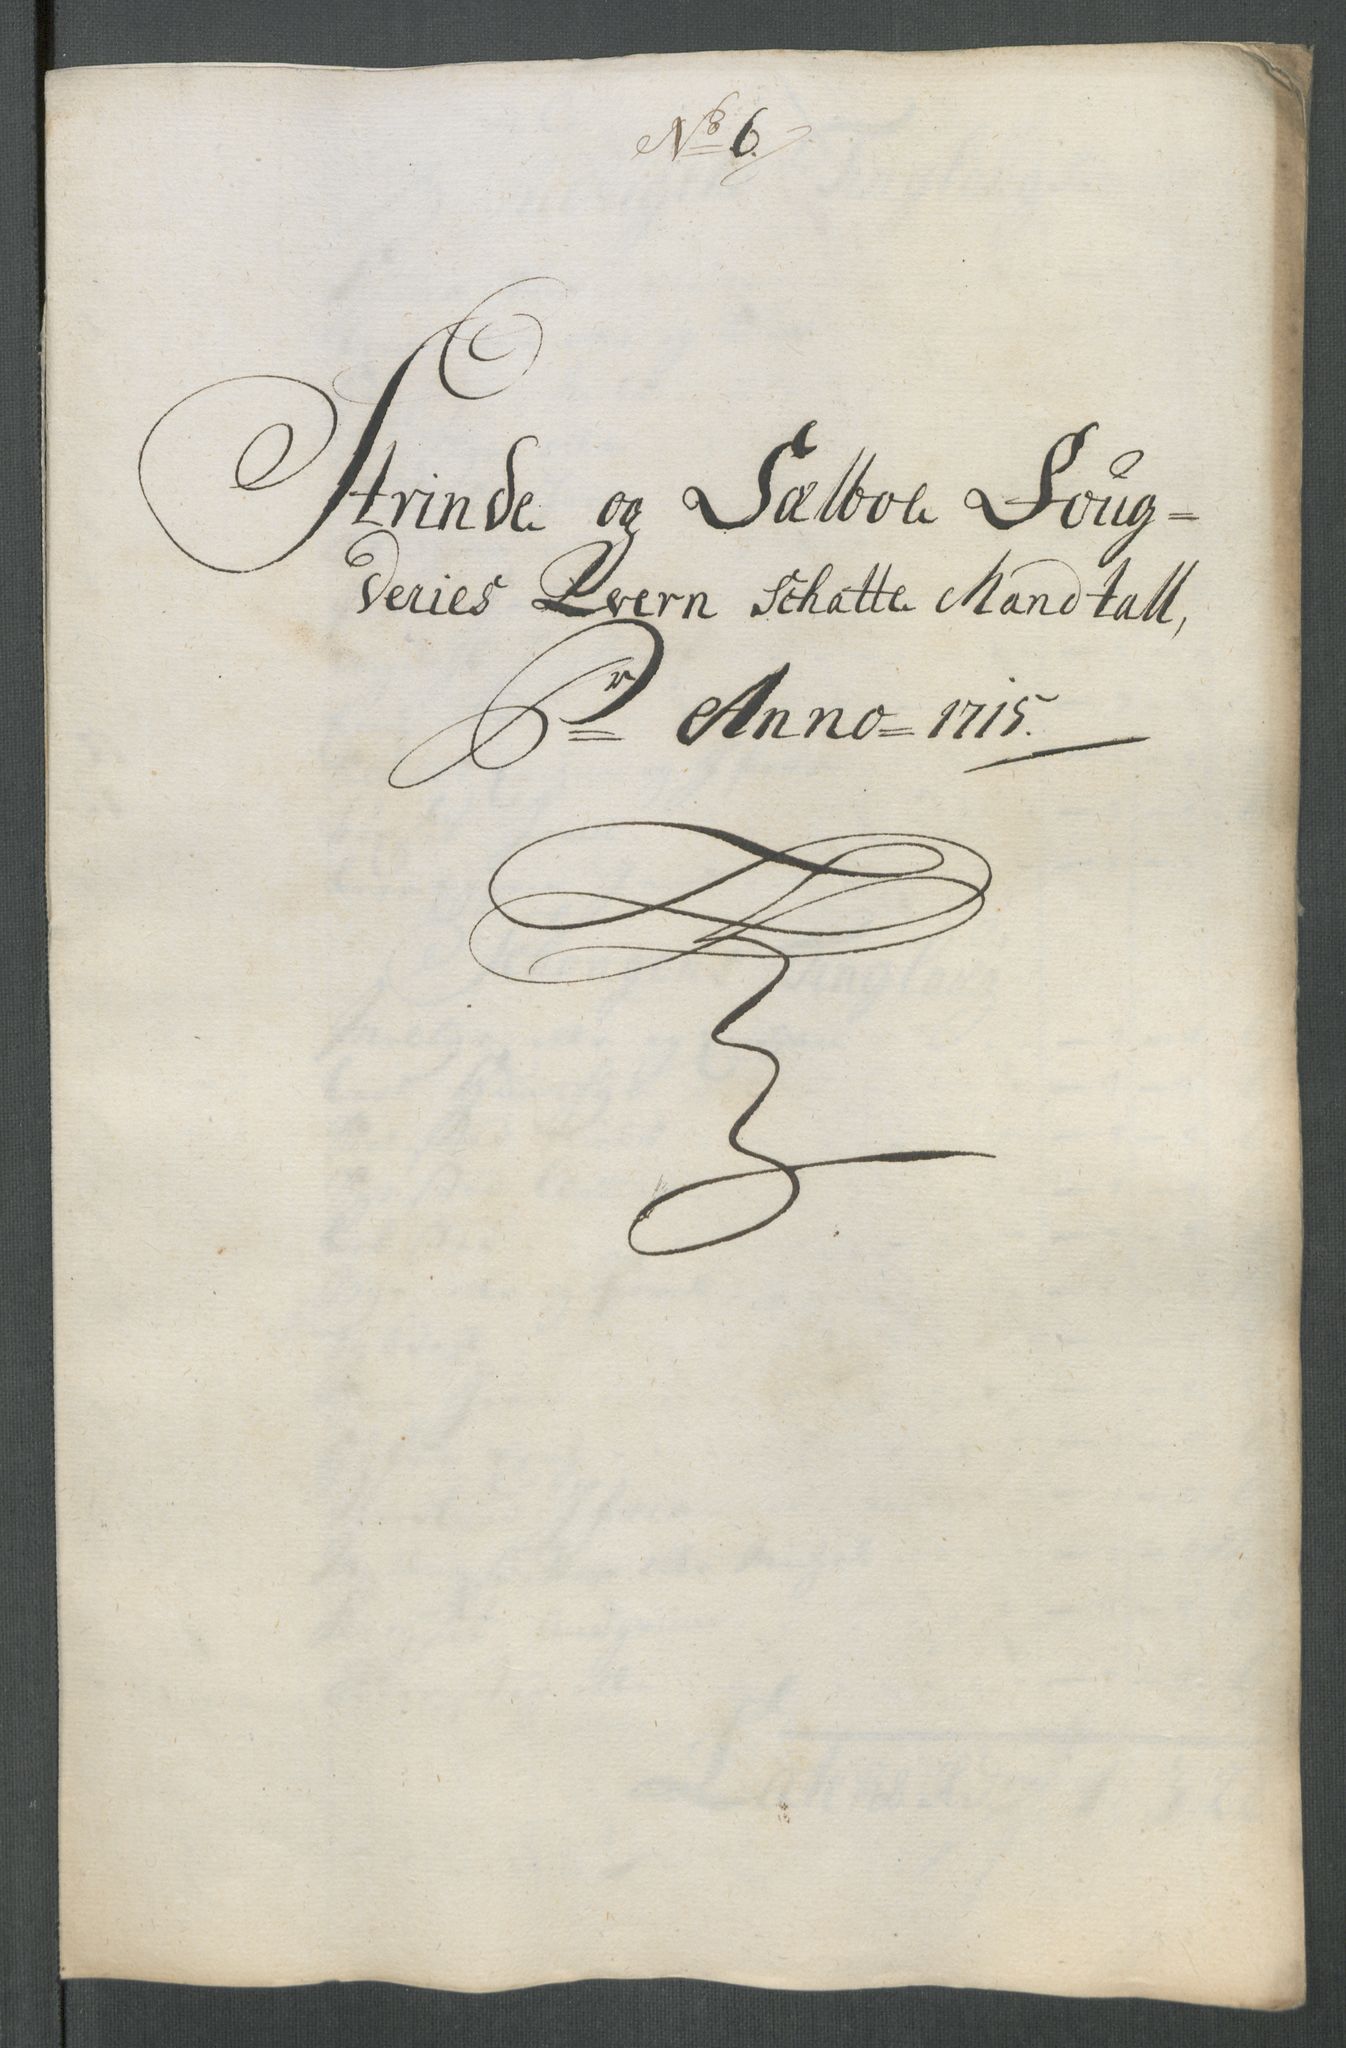 No 6.
Strinde og Sælboe Foug=
deries Qvern Schatte Mandtall,
Pr Anno= 1715.